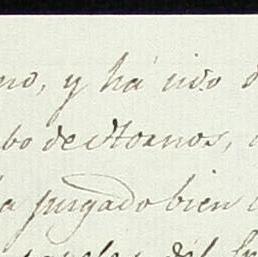 no, y há sido
bo de Hornos,
a juzgado bien
del